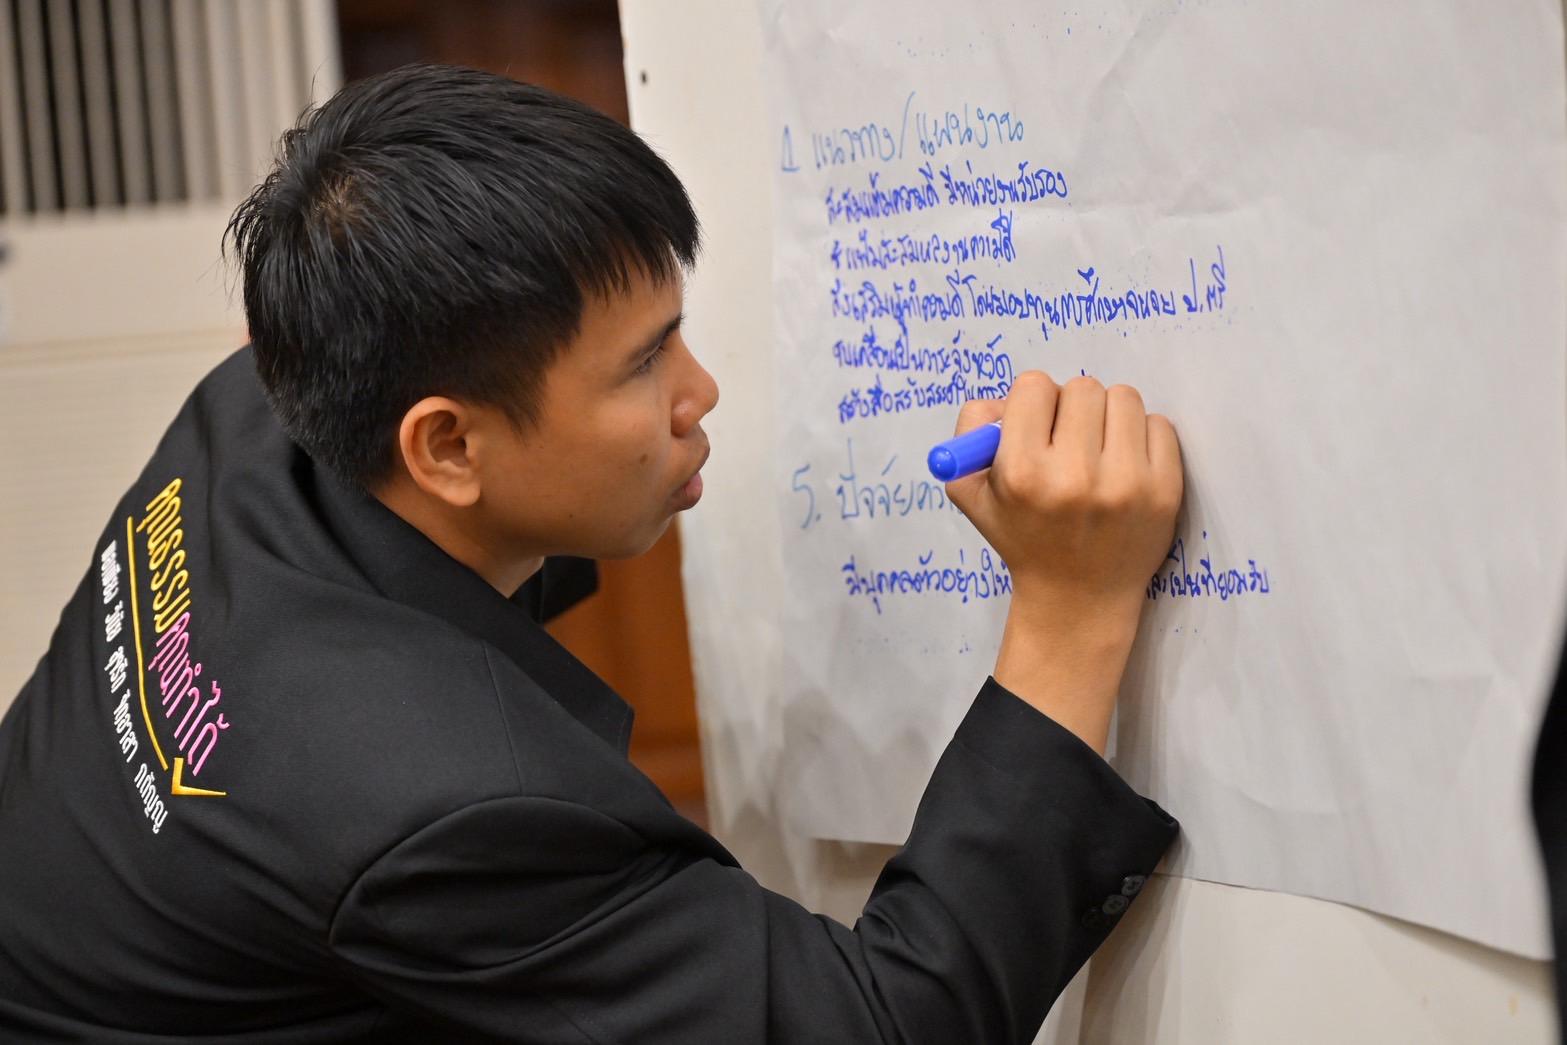 คุณธรรมคุณทำได้
พอเพียง วินัย สุจริต จิตอาสา กตัญญู
แนวทาง/แผนงาน
สะสมแต้มความดี มีหน่วยงานรับรอง
แฟ้มสะสมผลงานความดี
ส่งเสริมผู้ทำความดี โดยมอบทุนการศึกษาจนจบ ป.ตรี
ขับเคลื่อนเป็นวาระจังหวัด
สื่อสร้างสรรค์
5. ปัจจัยควา
มีบุคคลตัวอย่างให้ และเป็นที่ยอมรับ